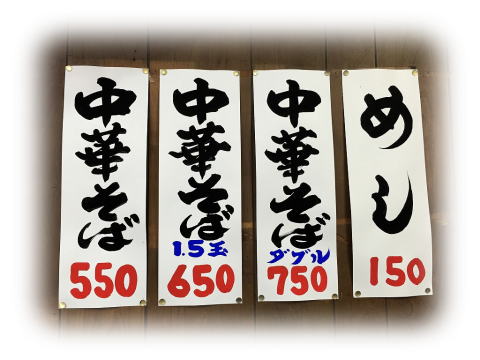 中華そば
550
中華そば
1.5玉
650
中華そば
ダブル
750
めし
150